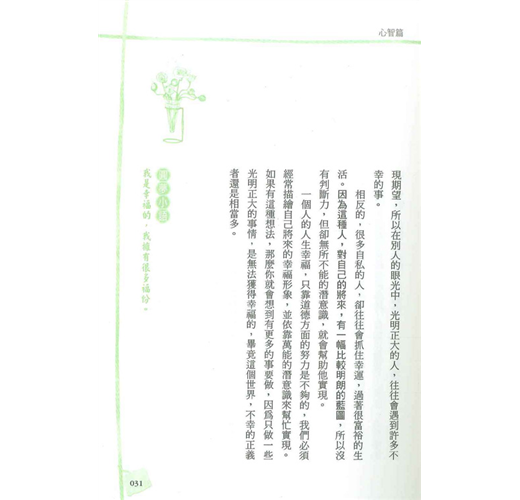 心智篇
現期望，所以在別人的眼光中，光明正大的人，往往會遇到許多不
幸的事。
相反的，很多自私的人，卻往往會抓住幸運，過著很富裕的生
活。因為這種人，對自己的將來，有一幅比較明朗的藍圖，所以沒
有判斷力，但卻無所不能的潛意識，就會幫助他實現。
一個人的人生幸福，只靠道德方面的努力是不夠的，我們必須
經常描繪自己將來的幸福形象，並依靠萬能的潛意識來幫忙實現。
如果有這種想法，那麼你就會想到有更多的事要做，因為只做一些
光明正大的事情，是無法獲得幸福的，畢竟這個世界，不幸的正義
者還是相當多。
小語
我是幸福的，我擁有很多福份。
031